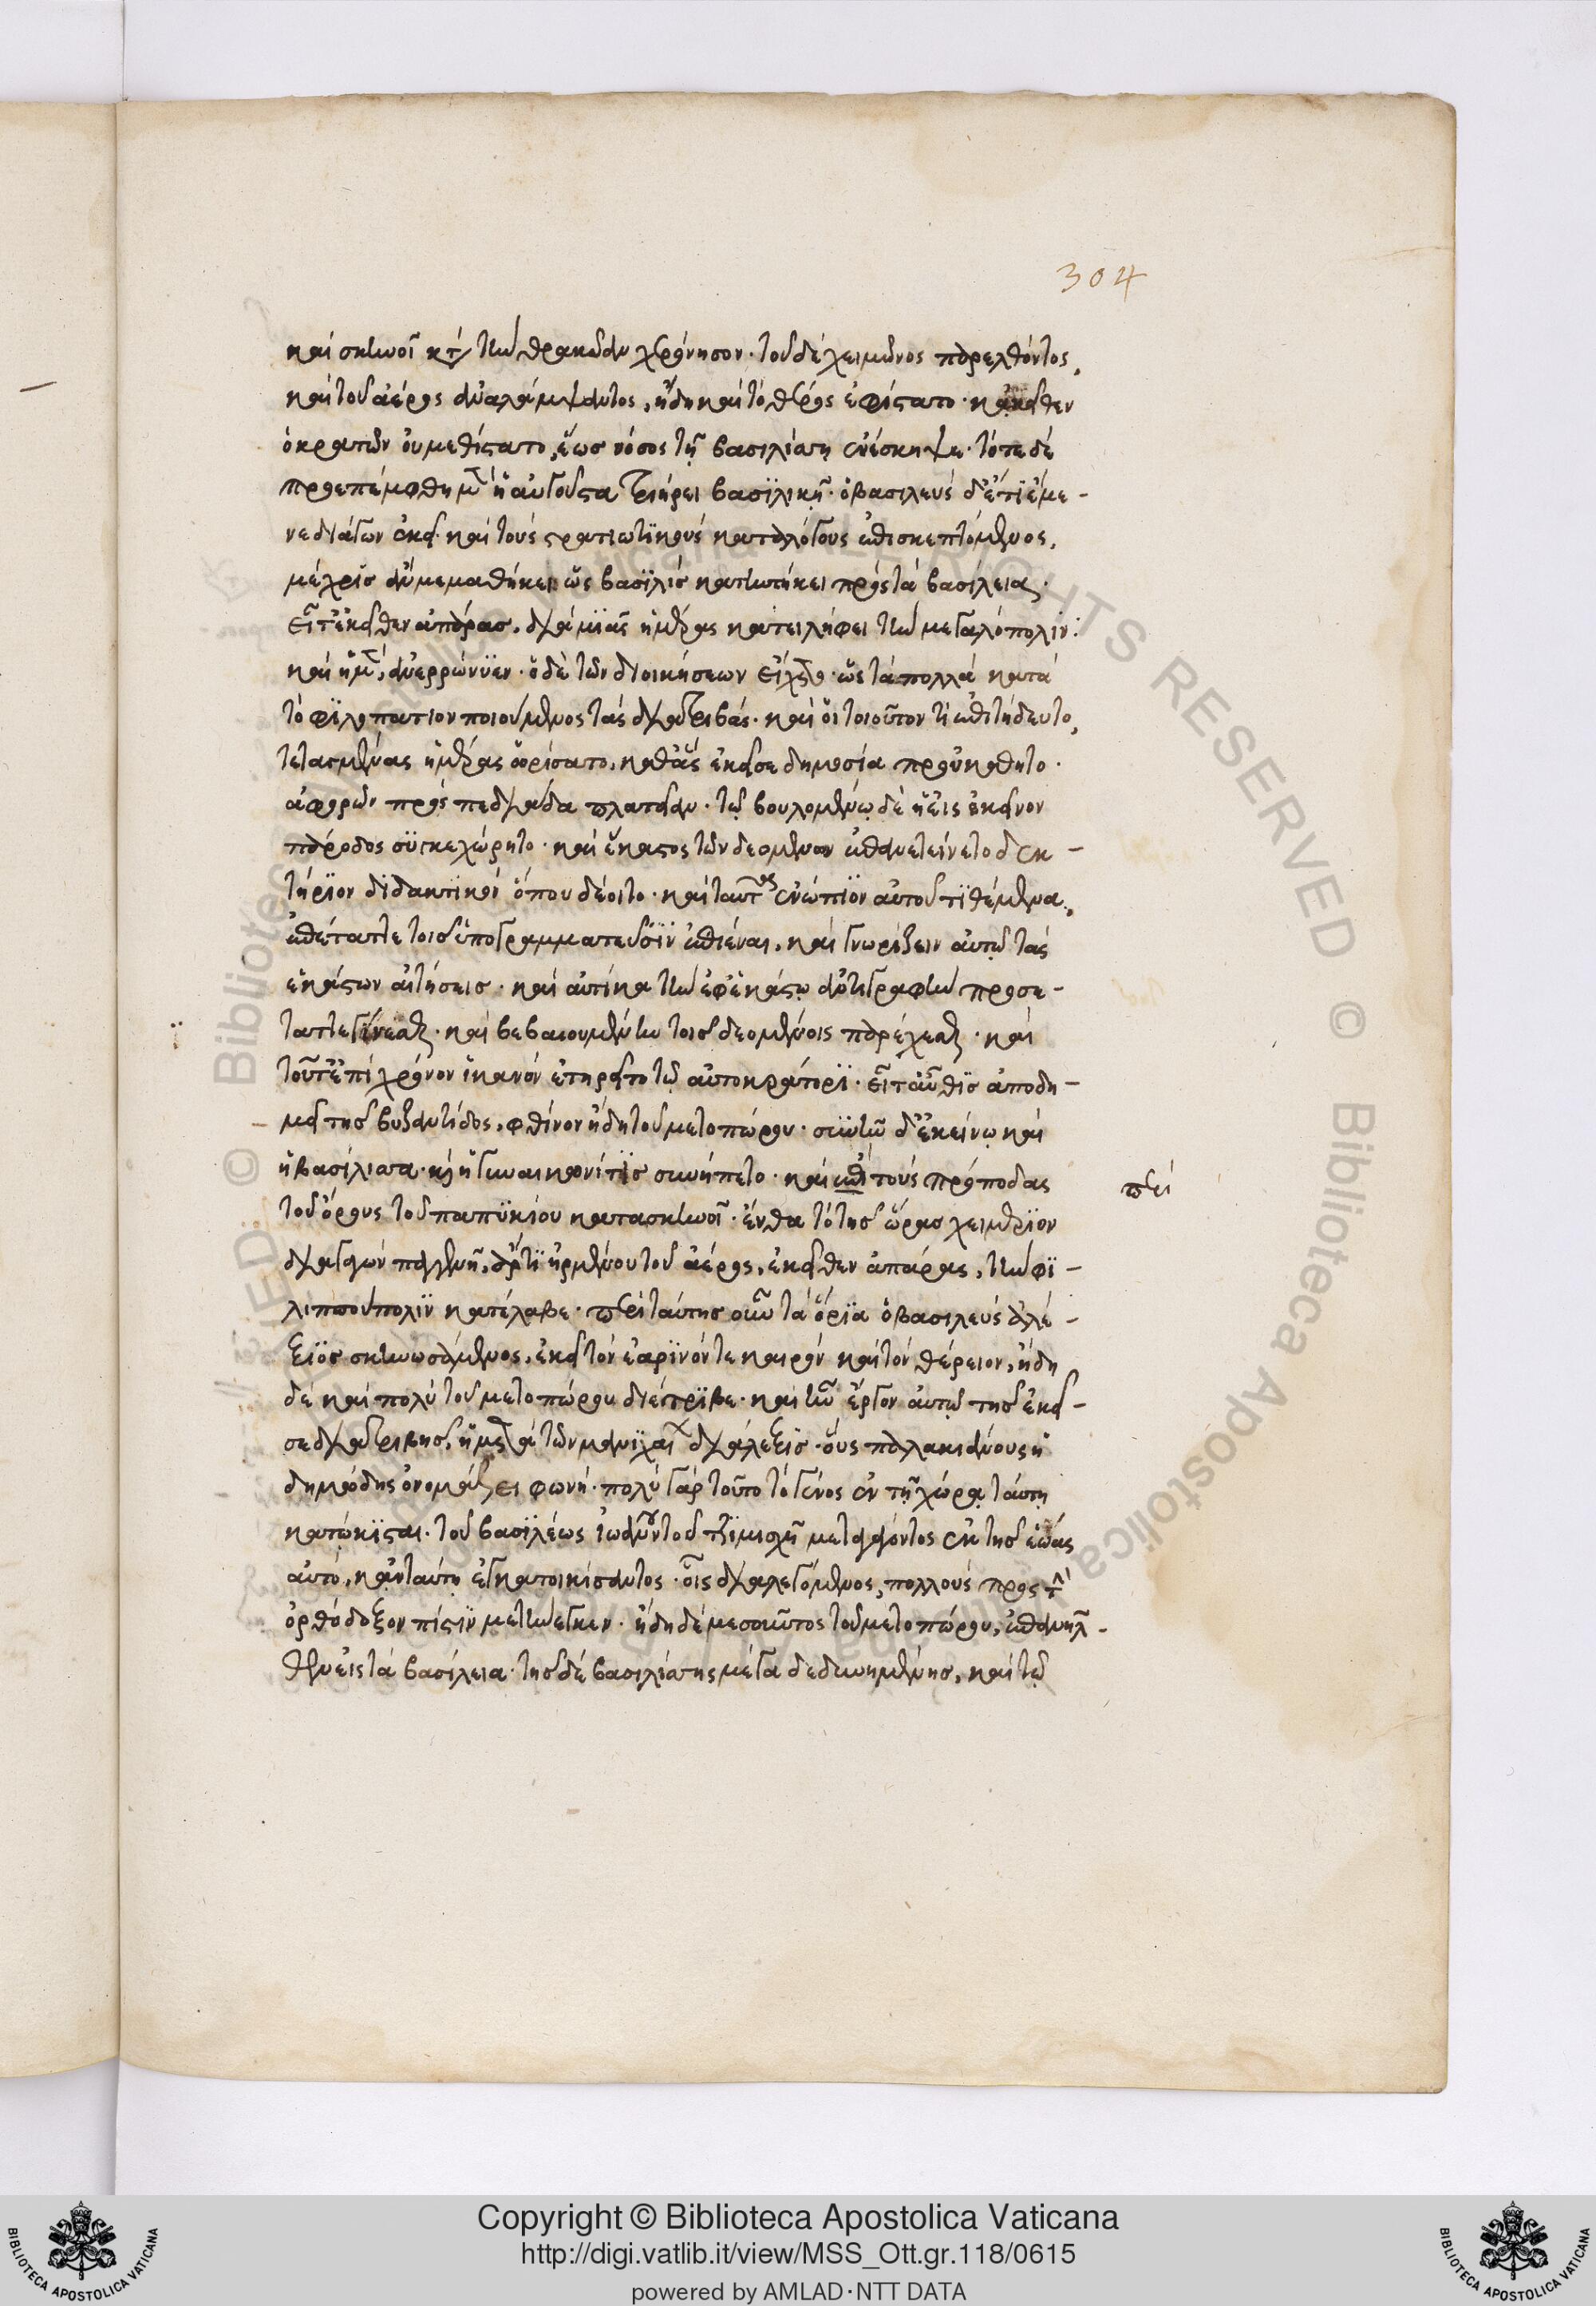 304
καὶ σκηνοῖ κατὰ τὴν θρακῶαν χερόνησον· τοῦ δὲ χειμῶνος παρελθόντος,
καὶ τοῦ ἀέρος ἀναλάμψαντος, ἤδη καὶ τὸ θέρος ἐφίστατο· κἀκεῖθεν
ὁ κρατῶν οὐ μεθίστατο, ἕως νόσος τῇ βασιλίσσῃ ἐνέσκηψε· τότε δὲ
προεπέμφθη μὲν ἡ αὐγοῦστα τριήρει βασϊλικῇ· ὁ βασιλεὺς δ' ἔτϊ ἔμε-
νε διάγων ἐκεῖ· καὶ τοὺς στρατιωτϊκοὺς καταλόγους ἐπισκεπτόμενος,
μέχρϊς ἂν μεμαθήκει ὡς βασϊλὶς κατηντήκει πρὸς τὰ βασίλεια·
εἶτ' ἐκεῖθεν ἀπάρας, διὰ μϊᾶς ἡμέρας κατειλήφει τὴν μεγαλόπολιν·
καὶ ἡ μὲν, ἀνερρώνϋεν· ὁ δὲ τῶν διοικήσεων εἴχετο· ὡς τὰ πολλὰ κατὰ
τὸ φϊλοπάτιον ποιούμενος τὰς διατριβάς· καὶ οἱ τοιοῦτον τὶ ἐπιτήδευτο,
τεταγμένας ἡμέρας ὡρίσατο, καθ' ἃς ἐκεῖσε δημοσία προὐκάθητο·
ἀφορῶν πρὸς πεδιάδα πλατεῖαν· τῷ βουλομένῳ δὲ ἡ εἰς ἐκεῖνον
πάροδος σϋγκεχώρητο· καὶ ἕκαστος τῶν δεομένων ἐπανετείνετο δεη-
τήρϊον δϊδακτϊκὸν ὅπου δέοιτο· καὶ ταῦτα ἐνώπϊον αὐτοῦ τϊθέμενα,
ἐπέταττε τοῖς ὑπογραμματεῦσϊν ἐπιέναι, καὶ γνωρίζειν αὐτῷ τὰς
ἑκάστων αἰτήσεις· καὶ αὐτίκα τὴν ἐφ' ἑκάστῳ ἀντιγραφὴν προσέ-
ταττε γίνεσθαι· καὶ βεβαιουμένην τοῖς δεομένοις παρέχεσθαι· καὶ
τοῦτ' ἐπὶ χρόνον ἱκανὸν ἐτηρεῖτο τῷ αὐτοκράτορϊ· εἶτ' αὖθϊς ἀποδη-
μεῖ τῆς βυζαντίδος, φθίνον ἤδη τοῦ μετοπώρου· σϋνῆν δ' ἐκείνῳ καὶ
ἡ βασίλισσα· καὶ ἡ γυναικονῖτϊς συνήπετο· καὶ ἐπὶ τοὺς πρόποδας
πεὶ
τοῦ ὄρους τοῦ παπϋκίου κατασκηνοῖ· ἔνθα τὸ τῆς ὥρας χειμέρϊον
διαγαγὼν πανγενῆ, ἄρτϊ ἠρμένου τοῦ ἀέρος, ἐκεῖθεν ἀπάρας, τὴν φϊ-
λιππούπολϊν κατέλαβε· περὶ ταύτης οὖν τὰ ὅρϊα ὁ βασιλεὺς ἀλέ-
ξϊος σκηνωσάμενος, ἐκεῖ τὸν ἐαρϊνόν τε καιρὸν καὶ τὸν θέρειον, ἤδη
δὲ καὶ πολὺ τοῦ μετοπώρου διέτρϊβε· καὶ ἦν ἔργον αὐτῷ τῆς ἐκεῖ-
σε διατριβῆς, ἡ μετὰ τῶν μανϊχαίων διάλεξϊς· οὓς παυλακιάνους ἡ
δημώδης ὀνομάζει φωνή· πολὺ γὰρ τοῦτο τὸ γένος ἐν τῇ χώρᾳ ταύτῃ
κατῴκϊσται· τοῦ βασϊλέως ἰωάννου τοῦ τζϊμισχῆ μεταγαγόντος ἐκ τῆς ἑῴας
αὐτὸ, κἀνταῦτα ἐγκατοικίσαντος· οἷς διαλεγόμενος, πολλοὺς πρὸς τὴν
ὀρθόδοξον πίστϊν μετήνεγκεν· ἤδη δὲ μεσοῦντος τοῦ μετοπώρου, ἐπανῆλ-
θεν εἰς τὰ βασίλεια· τῆς δὲ βασιλίσσης μέγα δεδυνημένης, καὶ τῷ
Copyright © Biblioteca Apostolica Vaticana
http://digi.vatlib.it/view/MSS_Ott.gr.118/0615
powered by AMLAD·NTT DATA